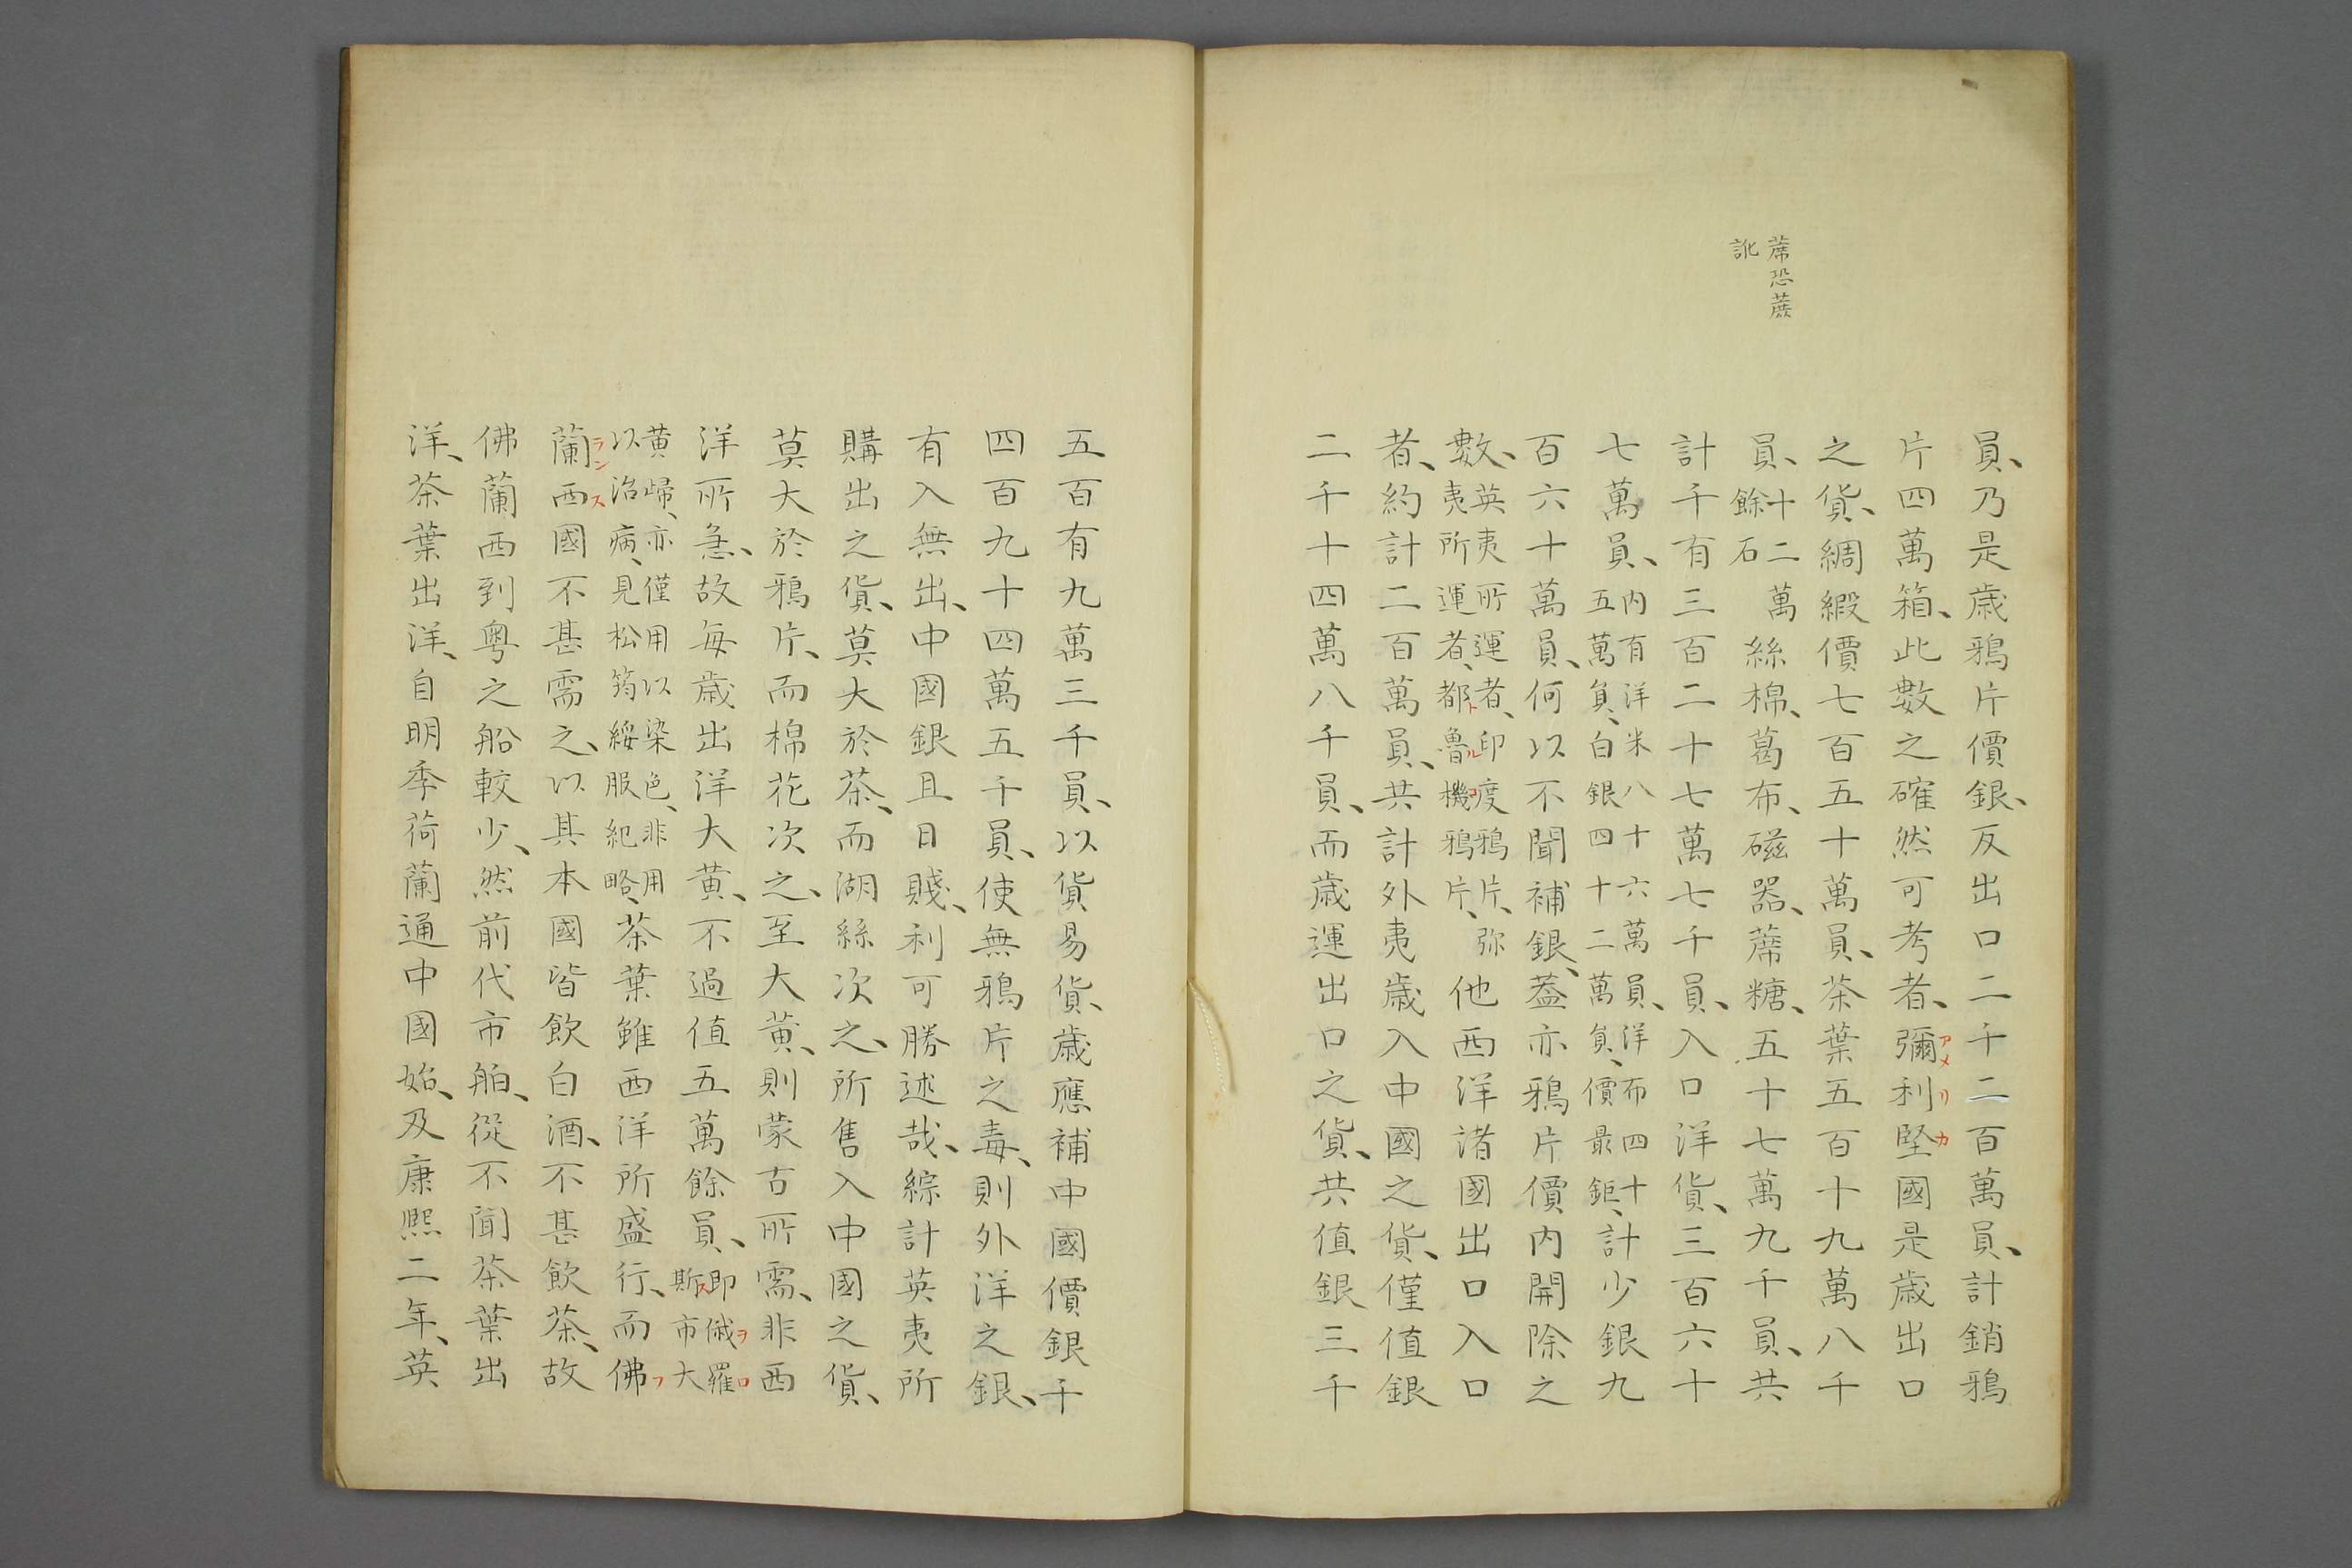 蓆恐蔗
訛
員、乃是歳鴉片價銀、反出口二千二百萬員、計銷鴉
片四萬箱、此數之確然可考者、彌利堅國是歳出口
アメリカ
之貨、綢緞價七百五十萬員、茶葉五百十九萬八千
員、十二萬餘石絲棉、葛布、磁器、蓆糖、五十七萬九千員、共
計千有三百二十七萬七千員、入口洋貨、三百六十
七萬員、内有洋米八十六萬員、洋布四十五萬員、白銀四十二萬員、價最鉅、計少銀九
百六十萬員、何以不聞補銀、蓋亦鴉片價内開除之
數、英夷所運者、印度鴉片、弥夷所運者、都魯機鴉片、他西洋諸國出口入口
トルコ
者、約計二百萬員、共計外夷歳入中國之貨、僅值銀
二千十四萬八千員、而歳運出口之貨、共值銀三千
五百有九萬三千員、以貨易貨、歳應補中國價銀千
四百九十四萬五千員、使無鴉片之毒、則外洋之銀、
有入無出、中國銀且日賤、利可勝述哉、綜計英夷所
購出之貨、莫大於茶、而湖絲次之、所售入中國之貨、
莫大於鴉片、而棉花次之、至大黄、則蒙古所需、非西
洋所急、故毎歳出洋大黄、不過值五萬餘員、即俄羅斯市大
ヲロス
黄歸、亦僅用以染色、非用以治病、見松筠綏服紀略、茶葉雖西洋所盛行、而佛
フ
蘭西國不甚需之、以其本國皆飲白酒、不甚飲茶、故
ランス
佛蘭西到粤之船較少、然前代市舶、從不聞茶葉出
洋、茶葉出洋、自明季荷蘭通中國始、及康熙二年、英